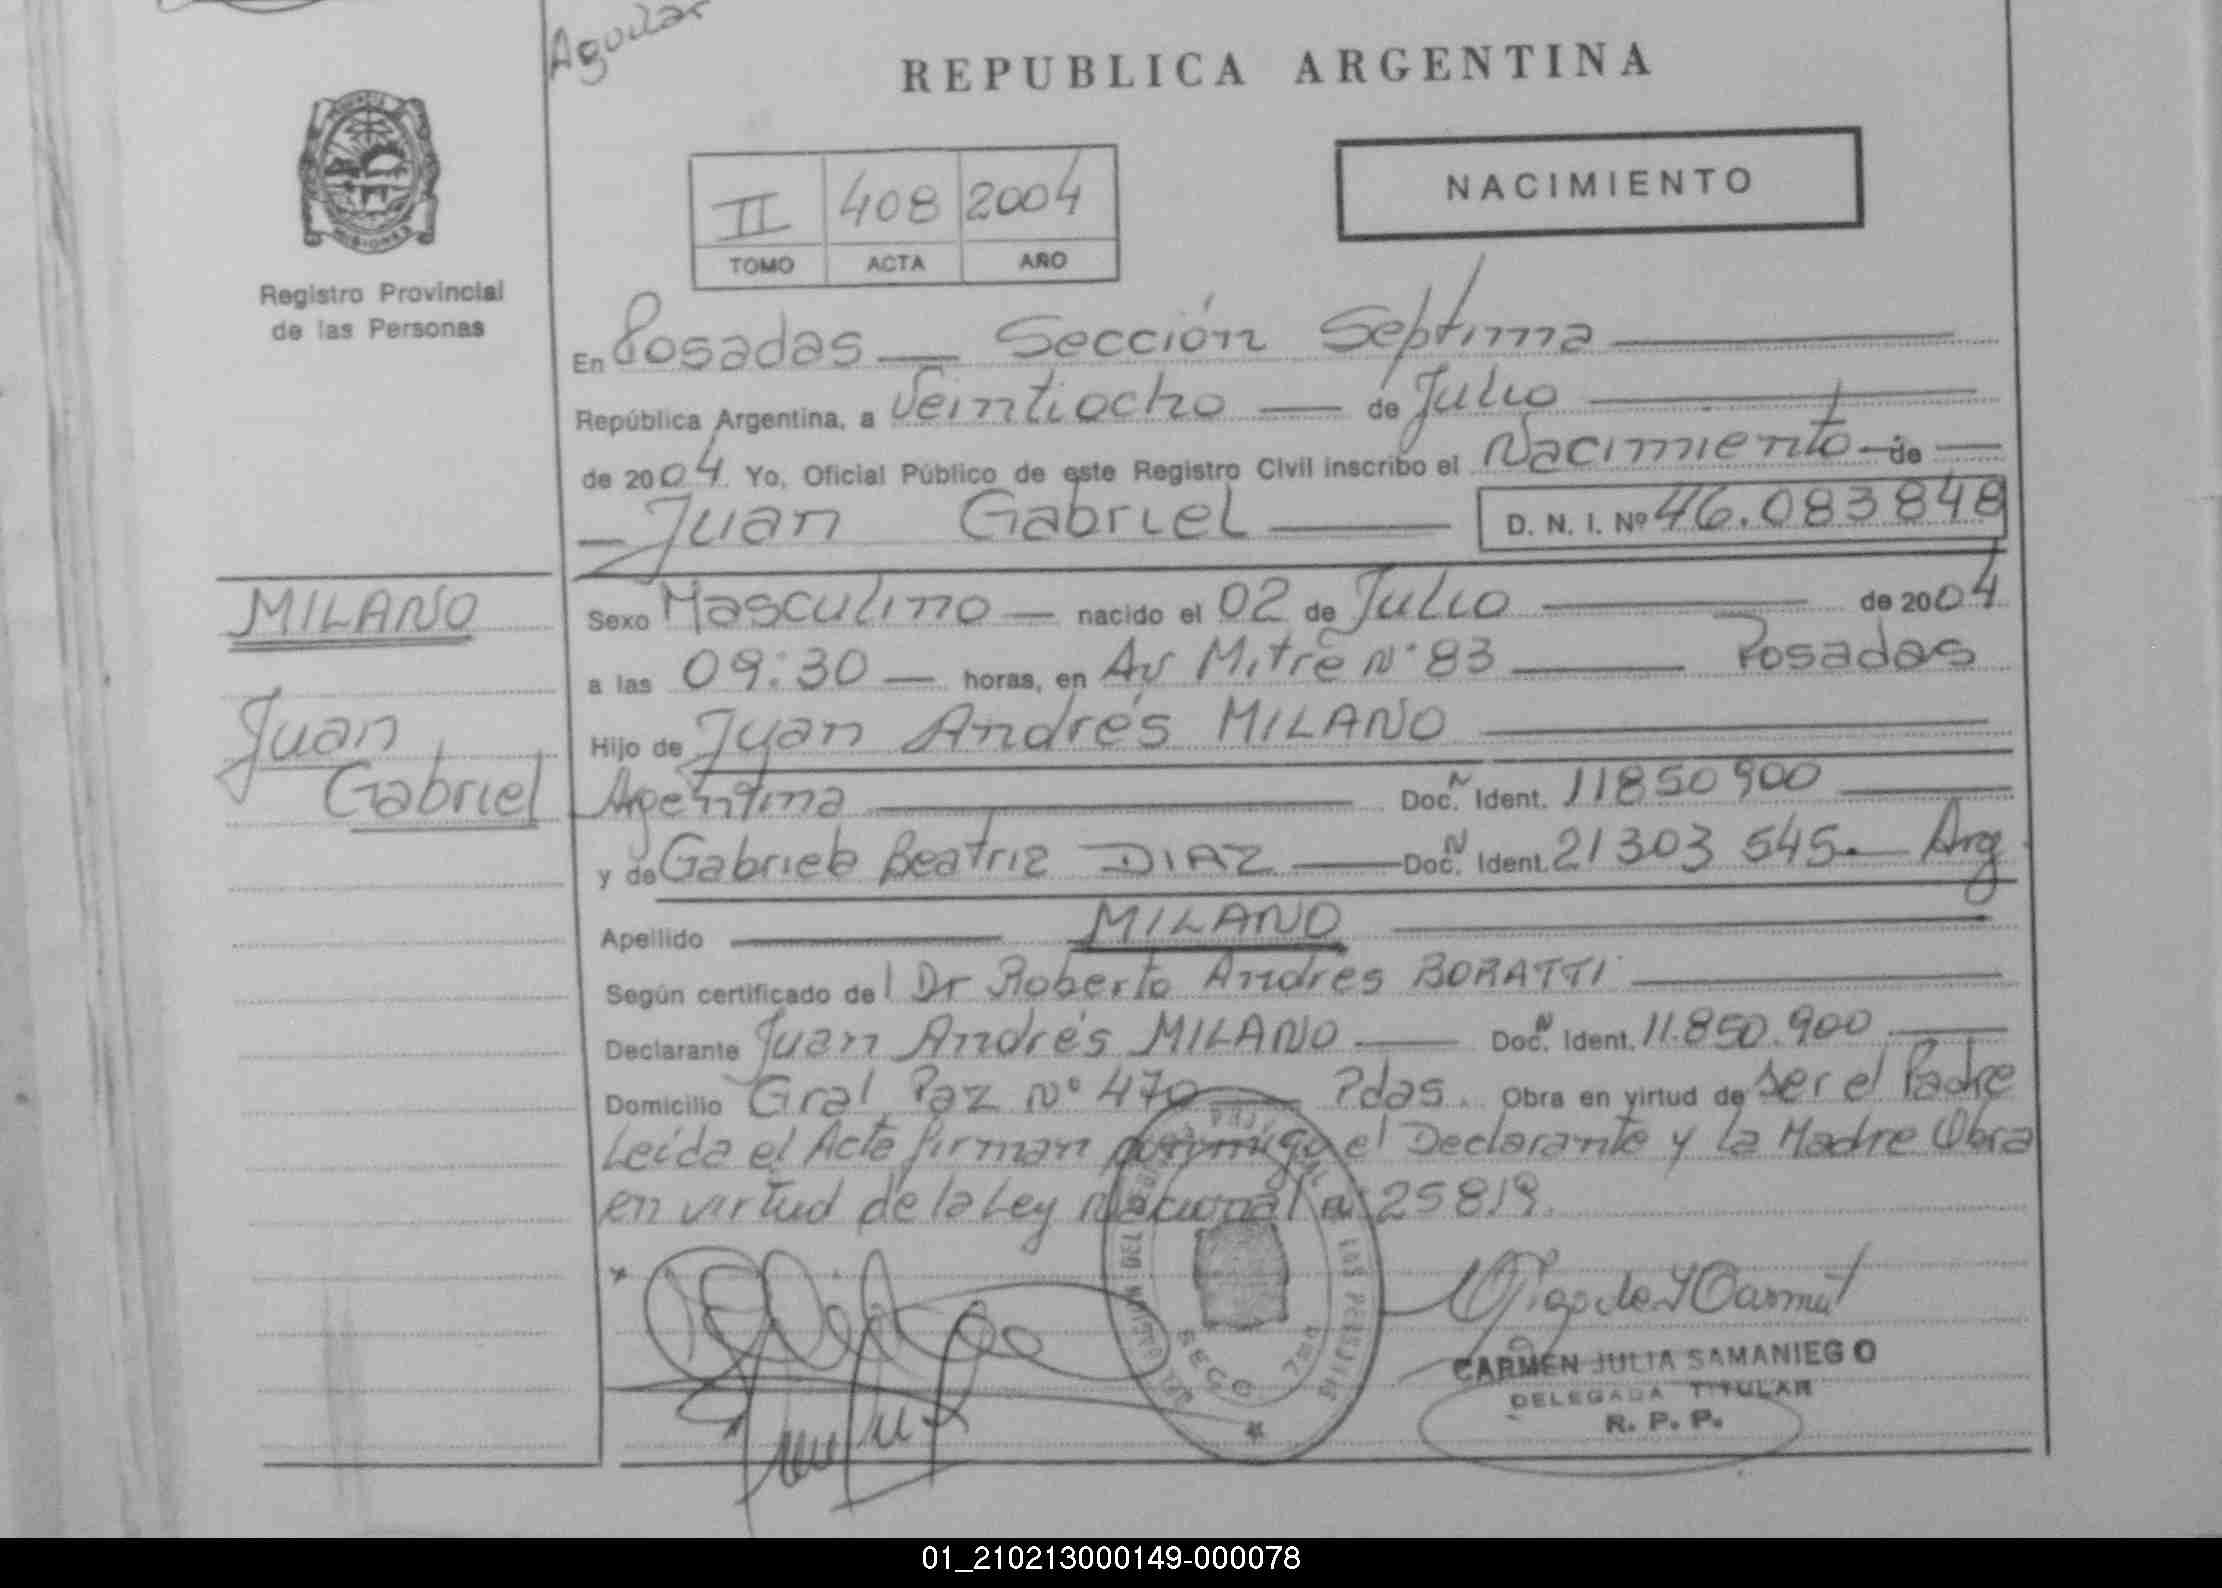 Aguilar
REPUBLICA ARGENTINA
MISIONES
Registro Provincial
de las Personas
II 408 2004
TOMO ACTA AÑO
NACIMIENTO
En Posadas — Sección Septima
República Argentina, a Veintiocho — de Julio
de 2004. Yo, Oficial Público de este Registro Civil inscribo el Nacimiento de
Juan Gabriel — D. N. I. Nº 46.083848
MILANO
Juan
Gabriel
Sexo Masculino — nacido el 02 de Julio — de 2004
a las 09:30 — horas, en Av Mitre N° 83 — Posadas
Hijo de Juan Andrés MILANO
Argentina — Doc. Ident. 11850900
y de Gabriela Beatriz DIAZ — Doc. Ident. 21303 545. — Arg
Apellido — MILANO
Según certificado del Dr Roberto Andres BORATTI
Declarante Juan Andrés MILANO — Doc. Ident. 11.850.900
Domicilio Gral Paz N° 470 — Pdas. Obra en virtud de ser el Padre
Leida el Acta firman conmigo el Declarante y la Madre Obra
en virtud de la Ley Nacional N° 25819.
LAS PERSONAS
SECC 7ma
CARMEN JULIA SAMANIEGO
DELEGADA TITULAR
R. P. P.
01_210213000149-000078